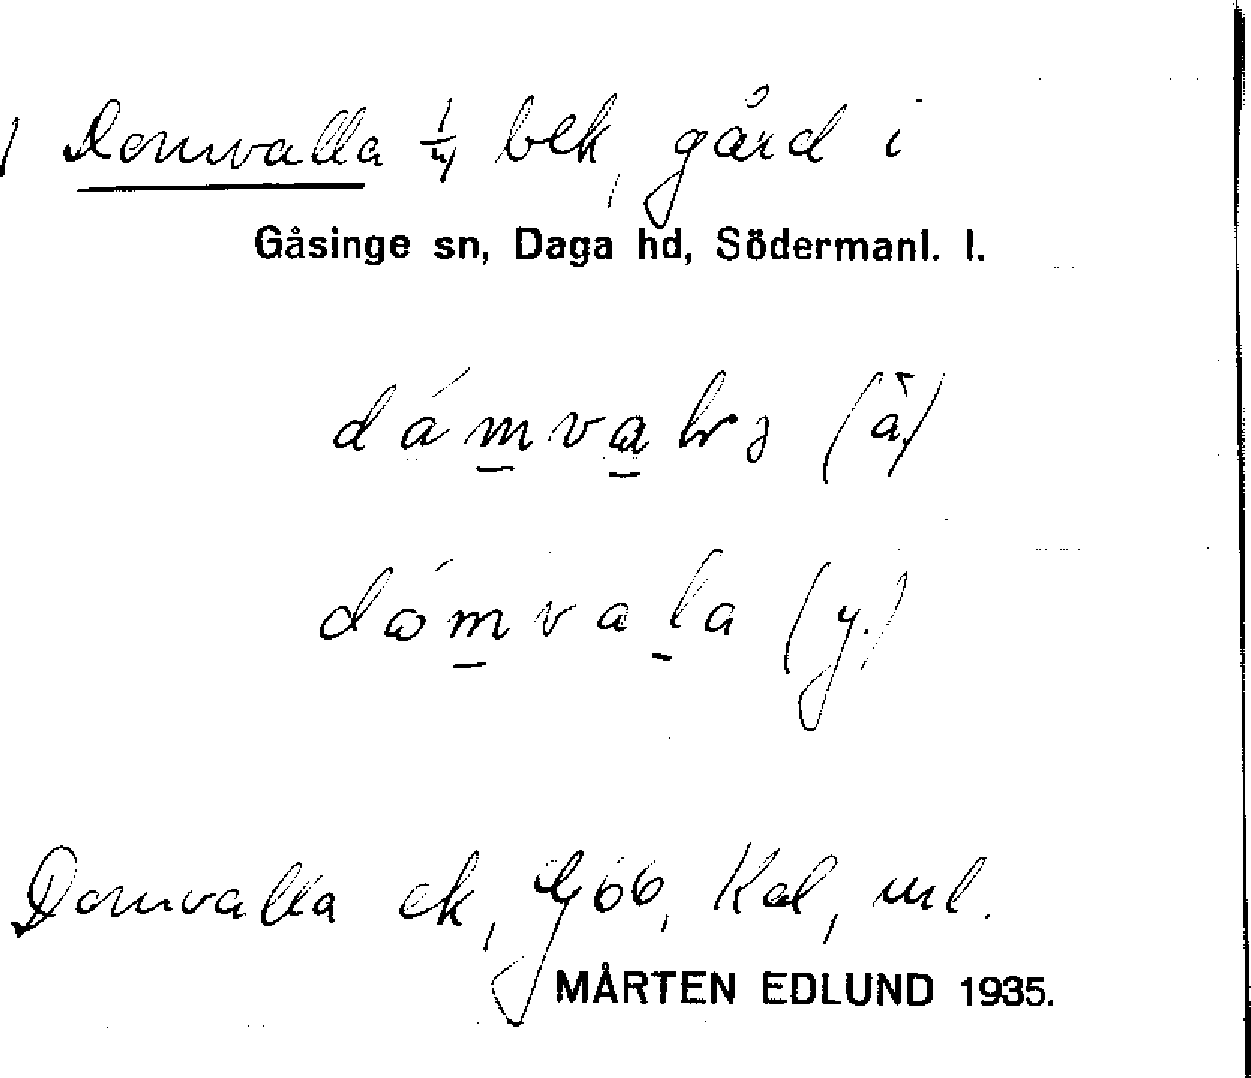 Domvalla 1/4 bek, gård i
Gåsinge sn, Daga hd, Södermanl. l.
(ä)
dómvala (y.)
Domvalla ek, Gjöb, Kal, url.
MÅRTEN EDLUND 1935.